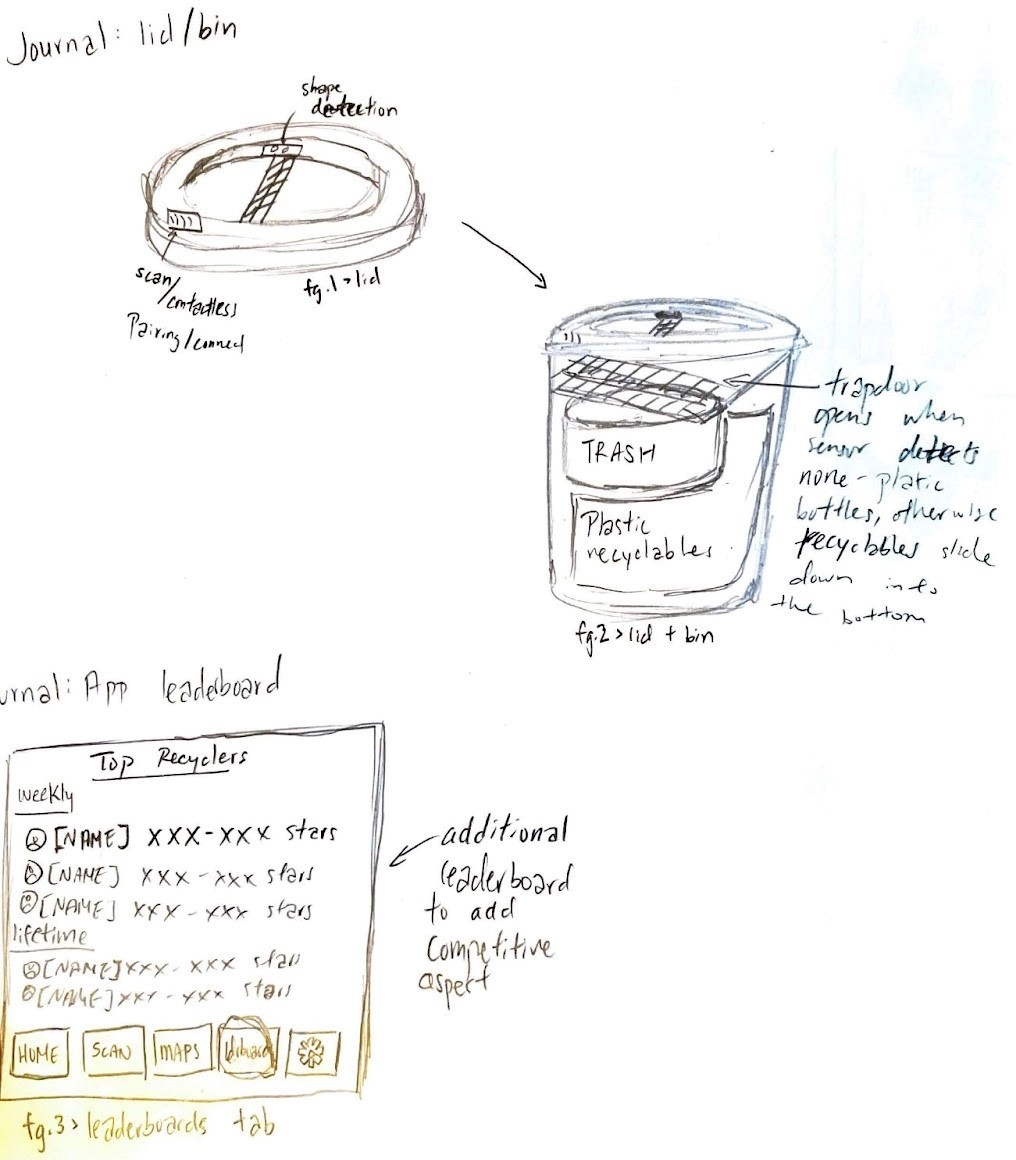 Journal: lid/bin
shape
detection
scan/
contactless
Pairing/connect
fg.1 > lid
trapdoor
opens when
sensor detects
none-platic
bottles, otherwise
recyclables slide
down into
the bottom
TRASH
Plastic
recyclables
fg.2 > lid + bin
urnal: App leaderboard
Top Recyclers
weekly
[NAME] XXX-XXX stars
[NAME] XXX-XXX stars
[NAME] XXX-XXX stars
lifetime
[NAME] XXX-XXX stars
[NAME] XXX-XXX stars
HOME SCAN MAPS
additional
leaderboard
to add
competitive
aspect
fg.3 > leaderboards tab